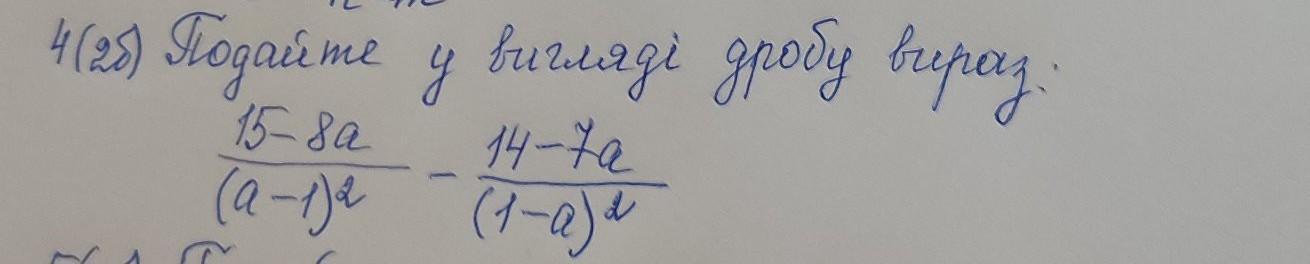 4(2б) Подайте у вигляді дробу вираз:
15-8a / (a-1)² - 14-7a / (1-a)²